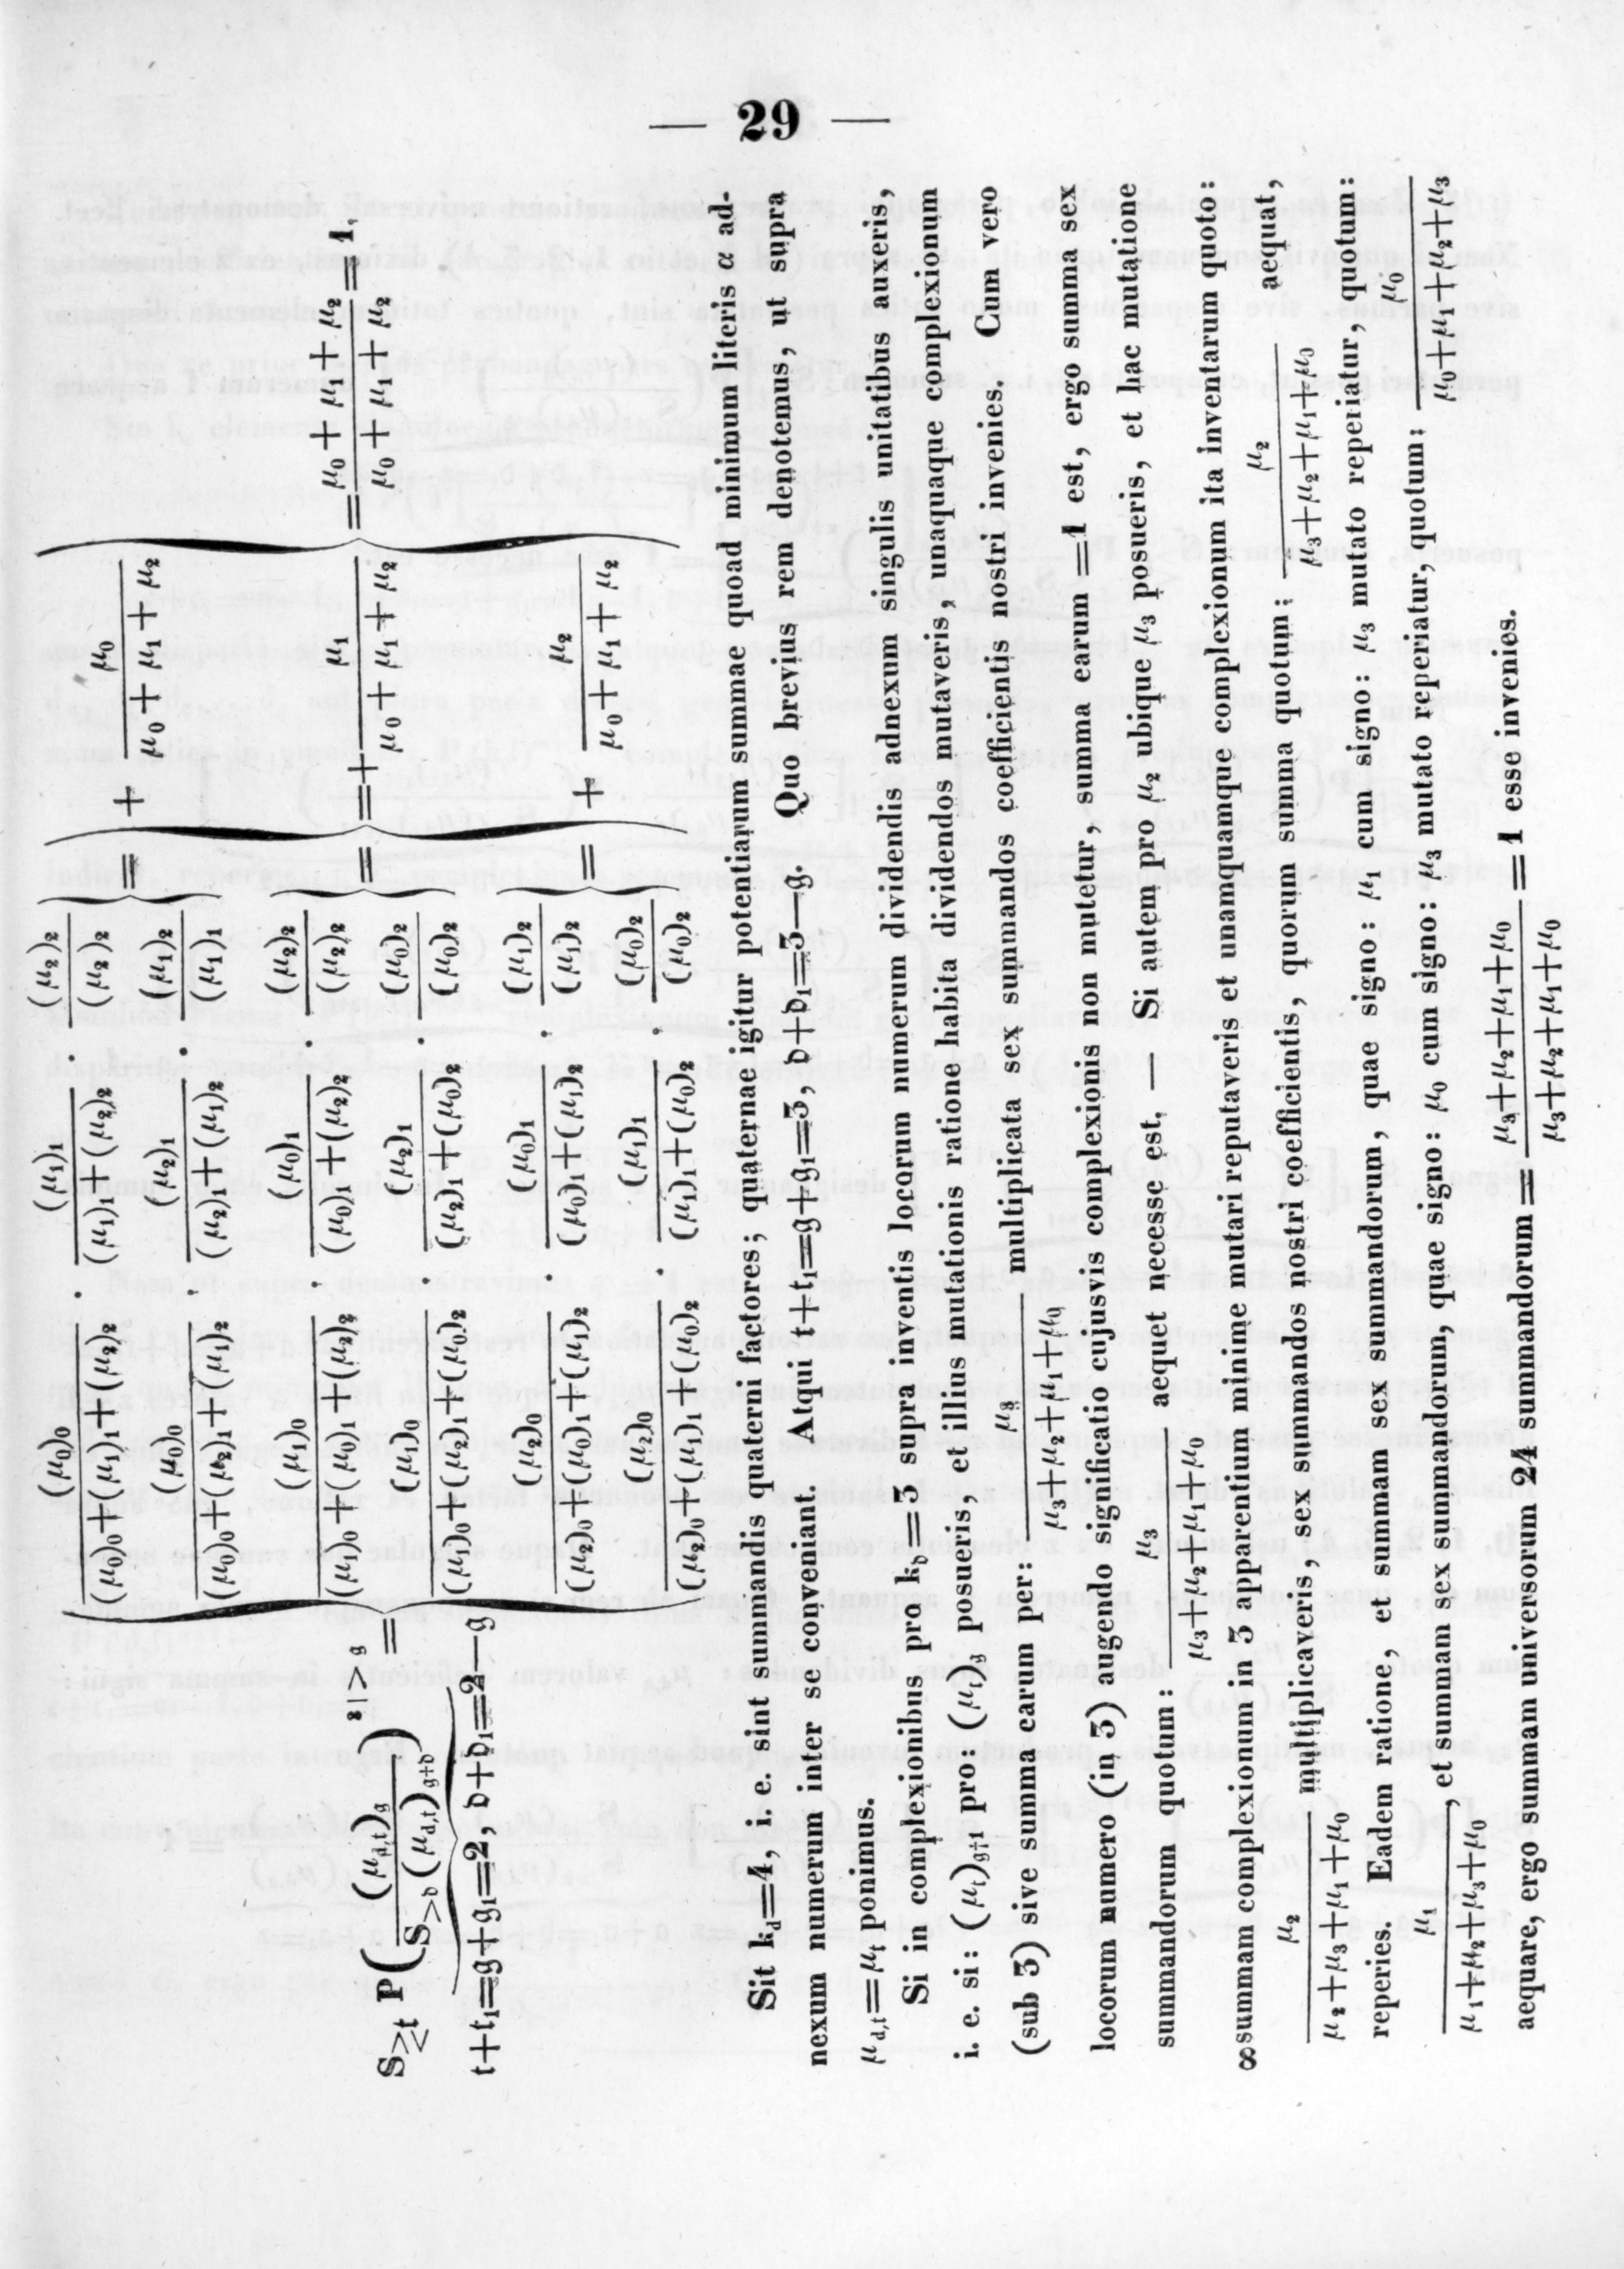 — 29 —
S≥t P ( (μd,t)g / (S>b (μd,t)g+b) ) 2|>g =
t+t1=g+g1=2, b+b1=2—g
(μ0)0 / ((μ0)0+(μ1)1+(μ2)2) . (μ1)1 / ((μ1)1+(μ2)2) . (μ2)2 / (μ2)2
(μ0)0 / ((μ0)0+(μ2)1+(μ1)2) . (μ2)1 / ((μ2)1+(μ1)2) . (μ1)2 / (μ1)1
= μ0 / (μ0+μ1+μ2)
+
(μ1)0 / ((μ1)0+(μ0)1+(μ2)2) . (μ0)1 / ((μ0)1+(μ2)2) . (μ2)2 / (μ2)2
(μ1)0 / ((μ1)0+(μ2)1+(μ0)2) . (μ2)1 / ((μ2)1+(μ0)2) . (μ0)2 / (μ0)2
= μ1 / (μ0+μ1+μ2)
+
(μ2)0 / ((μ2)0+(μ0)1+(μ1)2) . (μ0)1 / ((μ0)1+(μ1)2) . (μ1)2 / (μ1)2
(μ2)0 / ((μ2)0+(μ1)1+(μ0)2) . (μ1)1 / ((μ1)1+(μ0)2) . (μ0)2 / (μ0)2
= μ2 / (μ0+μ1+μ2)
= (μ0+μ1+μ2) / (μ0+μ1+μ2) = 1,
Sit kd=4, i. e. sint summandis quaterni factores; quaternae igitur potentiarum summae quoad minimum literis α ad-
nexum numerum inter se conveniant. Atqui t+t1=g+g1=3, b+b1=3—g. Quo brevius rem denotemus, ut supra
μd,t=μt ponimus.
Si in complexionibus pro kb=3 supra inventis locorum numerum dividendis adnexum singulis unitatibus auxeris,
i. e. si: (μt)g+1 pro: (μt)g posueris, et illus mutationis ratione habita dividendos mutaveris, unaquaque complexionum
(sub 3) sive summa earum per: μ3 / (μ3+μ2+μ1+μ0) multiplicata sex summandos coefficientis nostri invenies. Cum vero
locorum numero (in 3) augendo significatio cujusvis complexionis non mutetur, summa earum =1 est, ergo summa sex
summandorum quotum: μ3 / (μ3+μ2+μ1+μ0) aequet necesse est. — Si autem pro μ2 ubique μ3 posueris, et hac mutatione
summam complexionum in 3 apparentium minime mutari reputaveris et unamquamque complexionum ita inventarum quoto:
μ2 / (μ2+μ3+μ1+μ0) multiplicaveris, sex summandos nostri coefficientis, quorum summa quotum: μ2 / (μ3+μ2+μ1+μ0) aequat,
reperies. Eadem ratione, et summam sex summandorum, quae signo: μ1 cum signo: μ3 mutato reperiatur, quotum:
μ1 / (μ1+μ2+μ3+μ0), et summam sex summandorum, quae signo: μ0 cum signo: μ3 mutato reperiatur, quotum: μ0 / (μ0+μ1+μ2+μ3)
aequare, ergo summam universorum 24 summandorum = (μ3+μ2+μ1+μ0) / (μ3+μ2+μ1+μ0) = 1 esse invenies.